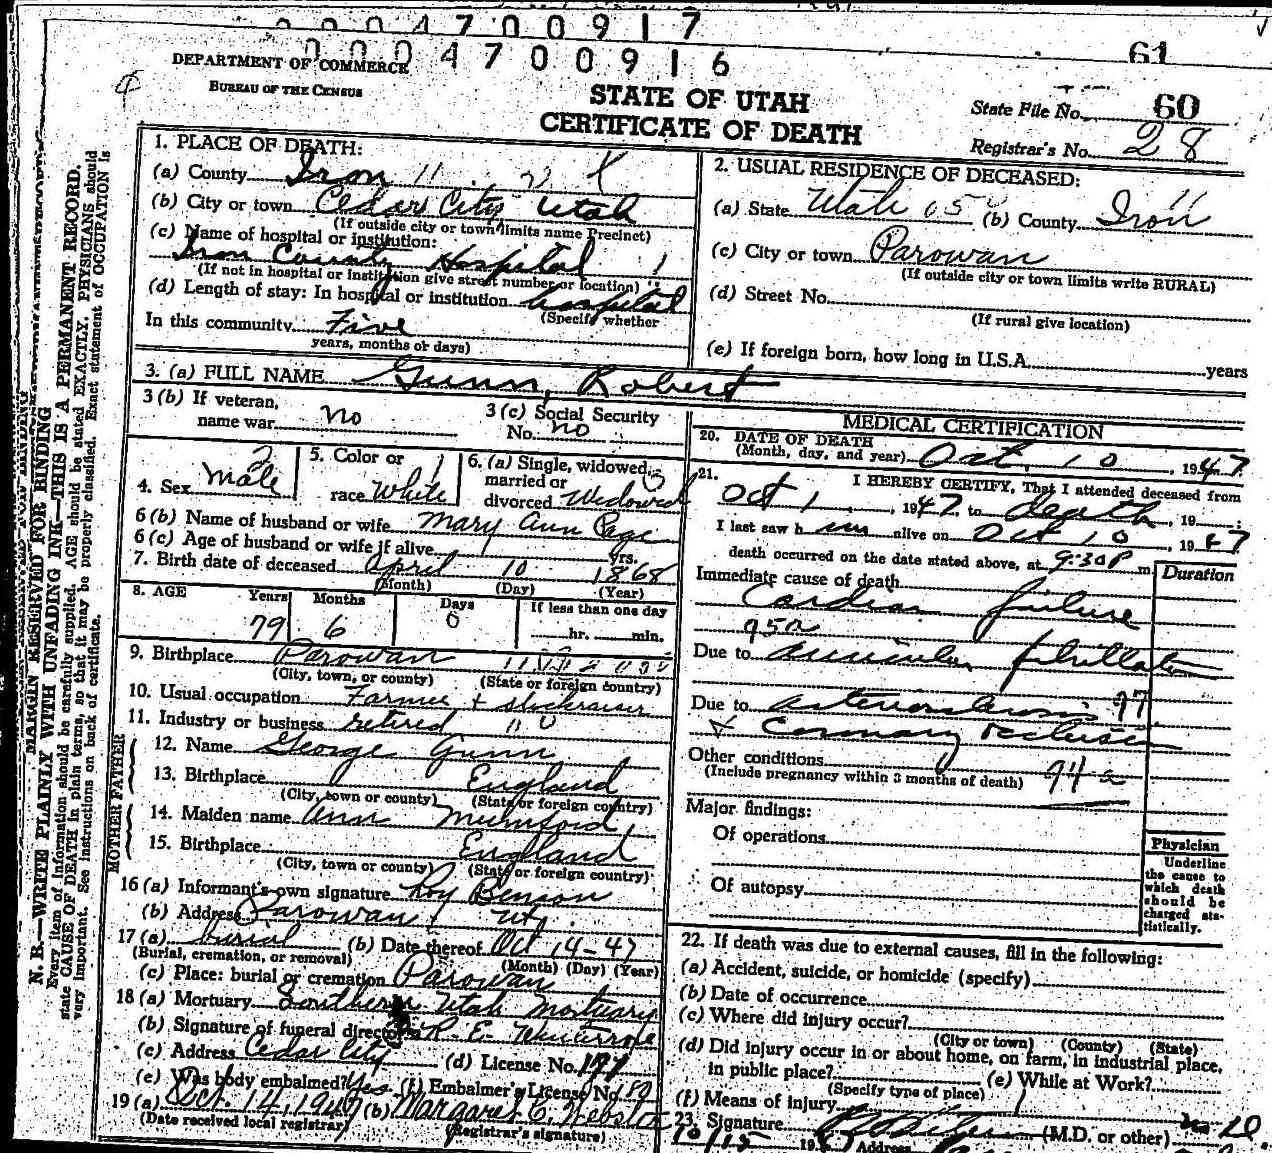 0 0 0 4 7 0 0 9 1 7
0 0 0 4 7 0 0 9 1 6
61
DEPARTMENT OF COMMERCE
BUREAU OF THE CENSUS
STATE OF UTAH
CERTIFICATE OF DEATH
State File No. 60
Registrar's No. 28
MARGIN RESERVED FOR BINDING
N. B.—WRITE PLAINLY WITH UNFADING INK—THIS IS A PERMANENT RECORD.
Every item of information should be carefully supplied. AGE should be stated EXACTLY. PHYSICIANS should
state CAUSE OF DEATH in plain terms, so that it may be properly classified. Exact statement of OCCUPATION is
very important. See instructions on back of certificate.
1. PLACE OF DEATH:
(a) County Iron 11
(b) City or town Cedar City Utah
(If outside city or town limits name Precinct)
(c) Name of hospital or institution:
Iron County Hospital 1
(If not in hospital or institution give street number or location)
(d) Length of stay: In hospital or institution hospital
(Specify whether
In this community Five
years, months or days)
2. USUAL RESIDENCE OF DECEASED:
(a) State Utah (b) County Iron
(c) City or town Parowan
(If outside city or town limits write RURAL)
(d) Street No.
(If rural give location)
(e) If foreign born, how long in U.S.A. years
3. (a) FULL NAME Gunn, Robert
3 (b) If veteran,
name war no
3 (c) Social Security
No. no
4. Sex male
2
5. Color or
race White
1
6. (a) Single, widowed,
married or
divorced Widowed
3
6 (b) Name of husband or wife Mary Ann Page
6 (c) Age of husband or wife if alive yrs.
7. Birth date of deceased April 10 1868
(Month) (Day) (Year)
8. AGE Years Months Days If less than one day
79 6 0 hr. min.
9. Birthplace Parowan
(City, town, or county) (State or foreign country)
10. Usual occupation Farmer & stockraiser
11. Industry or business retired
FATHER
12. Name George Gunn
13. Birthplace England
(City, town or county) (State or foreign country)
MOTHER
14. Maiden name Ann Mumford
15. Birthplace England
(City, town or county) (State or foreign country)
16 (a) Informant's own signature Roy Benson
(b) Address Parowan, Ut.
17 (a) burial (b) Date thereof Oct 14-47
(Burial, cremation, or removal) (Month) (Day) (Year)
(c) Place: burial or cremation Parowan
18 (a) Mortuary Southern Utah Mortuary
(b) Signature of funeral director R. E.
(c) Address Cedar City (d) License No.
(e) Was body embalmed? Yes (f) Embalmer's License No.
19 (a) Oct. 14, 1947 (b) Margaret C. Webster
(Date received local registrar) (Registrar's signature)
MEDICAL CERTIFICATION
20. DATE OF DEATH
(Month, day, and year) Oct. 10, 1947
21. I HEREBY CERTIFY, That I attended deceased from
Oct 1, 1947 to death, 19 ;
I last saw him alive on Oct 10, 1947
death occurred on the date stated above, at 9:30P m.
Duration
Immediate cause of death
Cardiac failure
95a
Due to auricular fibrillation
Due to arteriosclerosis 97
& Coronary occlusion
Other conditions 94a
(Include pregnancy within 3 months of death)
Major findings:
Of operations
Of autopsy
Physician
Underline
the cause to
which death
should be
charged sta-
tistically.
22. If death was due to external causes, fill in the following:
(a) Accident, suicide, or homicide (specify)
(b) Date of occurrence
(c) Where did injury occur?
(City or town) (County) (State)
(d) Did injury occur in or about home, on farm, in industrial place,
in public place? (e) While at Work?
(Specify type of place)
(f) Means of injury
23. Signature (M.D. or other) M.D.
10/15 1947 Address